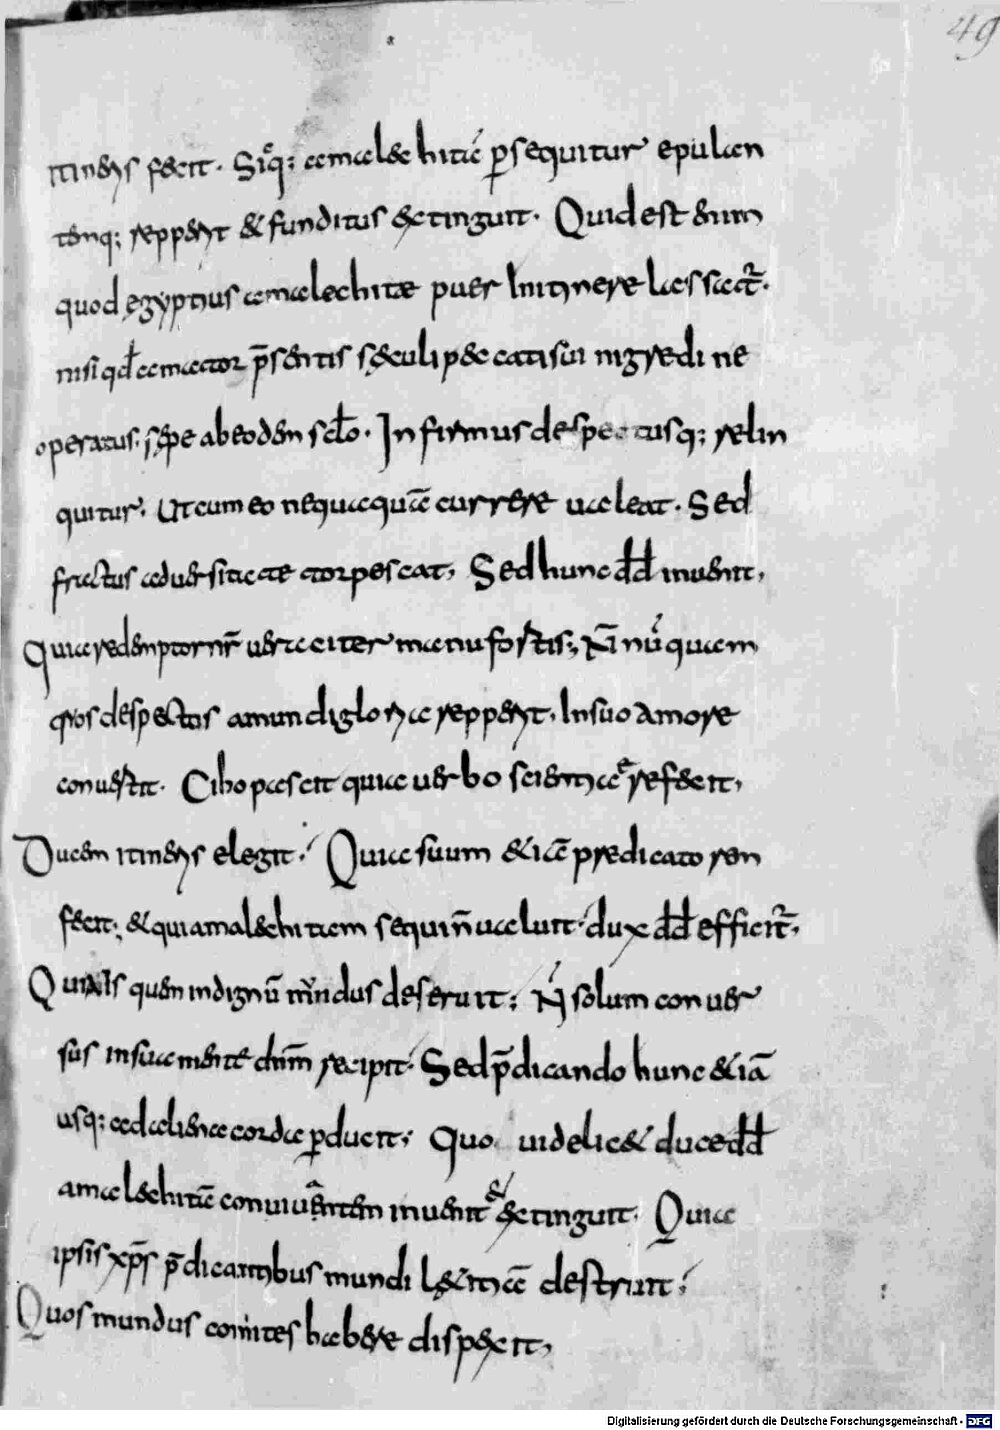 49
itineris fecit. Siq̊; amalechitā p̲sequitur epulan
temq; repperit & funditus extinguit. Quid est enim
quod ęgyptius amalechitae puer Initinere lassat᷑.
nisi qđ amator p̄sentis sęculi peccati sui nigredine
operatus. sępe ab eodem sc̄lo. Infirmus despectusq; relin
quitur. Ut cum eo nequaquā currere ualeat. Sed
fractus aduersitate torpescat, Sed hunc dd̄ inuenit,
Quia redemptor nr̄ ueraciter manu fortis; N̄ nū quam
quos despectos a mundi gloria repperit, Insuo amore
conuertit. Cibo pascit quia uerbo scientiae refecit,
Ducem itineris elegit. Quia suum &iā predicatorem
fecit; & qui amalechitam sequi n̄ ualuit. dux dd̄ efficit᷑,
Quia is quem indignū mundus deseruit; N̄ solum conuer
sus insua mente dn̄m recipit. Sed p̄dicando hunc &iā
usq; ad aliena corda p̲ducit; Quo uidelic& duce dd̄
amalechitā conuiuantem inuenit & extinguit. Quia
ipsis xp̄s p̄dicantibus mundi lętitiā destruit,
Quos mundus comites habere dispexit,
Digitalisierung gefördert durch die Deutsche Forschungsgemeinschaft - DFG